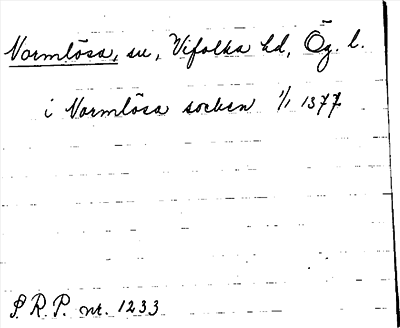 Normlösa, sn, Vifolka hd, Ög. l.
i Normlösa socken 1/1 1377
S.R.P. nr. 1233